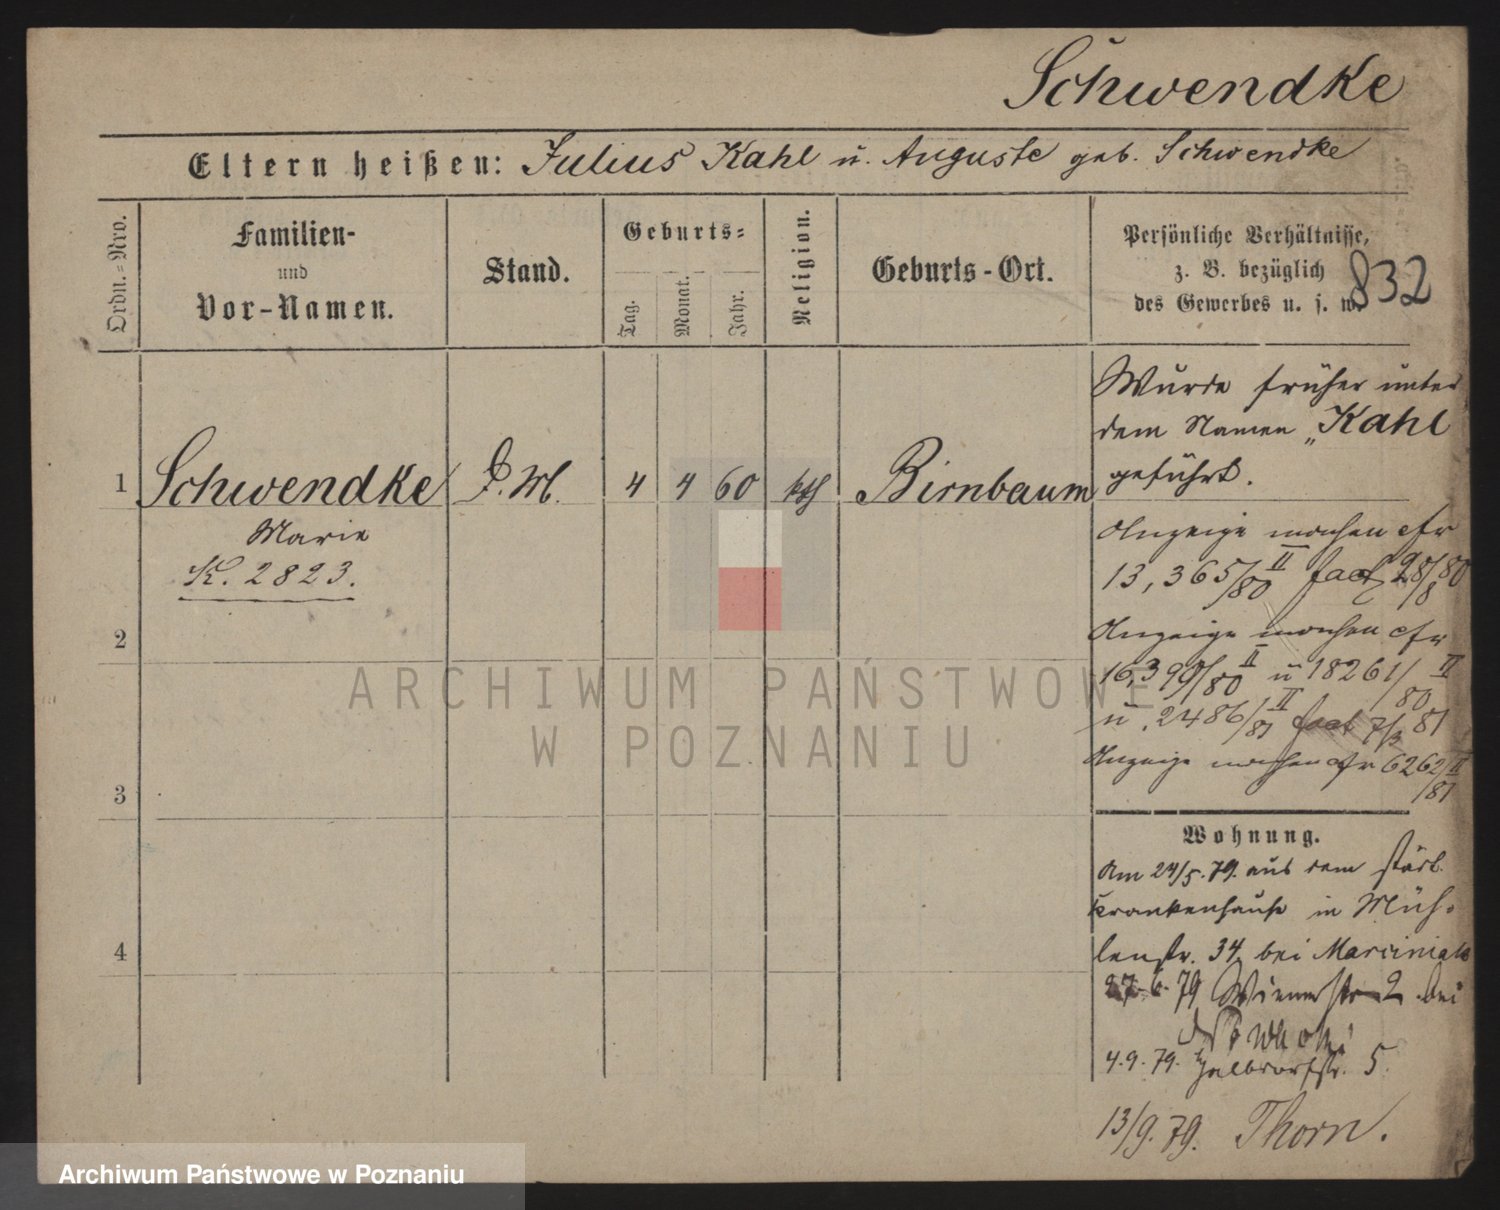 Schwendke
Eltern heißen: Julius Kahl u. Auguste geb. Schwendke
Ordn.=Nro.
Familien-
und
Vor-Namen.
Stand.
Geburts=
Tag.
Monat.
Jahr.
Religion.
Geburts-Ort.
Persönliche Verhältnisse,
z. B. bezüglich
des Gewerbes u. s. w.
832
1 Schwendke 4 4 60 kth Birnbaum
Marie
K. 2823.
2
3
4
Wurde früher unter
dem Namen „Kahl
geführt.
Anzeige machen cfr
13,365/80 II fact 28/8 80
Anzeige machen cfr
16,399/80 II u 18261/80 II
u. 2486/81 II fact 7/3 81
Anzeige machen cfr 6262/81 II
Wohnung.
Am 24/5. 79. aus dem städt.
Krankenhause in Müh-
lenstr. 34. bei Marciniak
27.6.79 Wienerstr 2 bei
4.9.79. Halbdorfstr. 5.
13/9. 79. Thorn.
ARCHIWUM PAŃSTWOWE
W POZNANIU
Archiwum Państwowe w Poznaniu